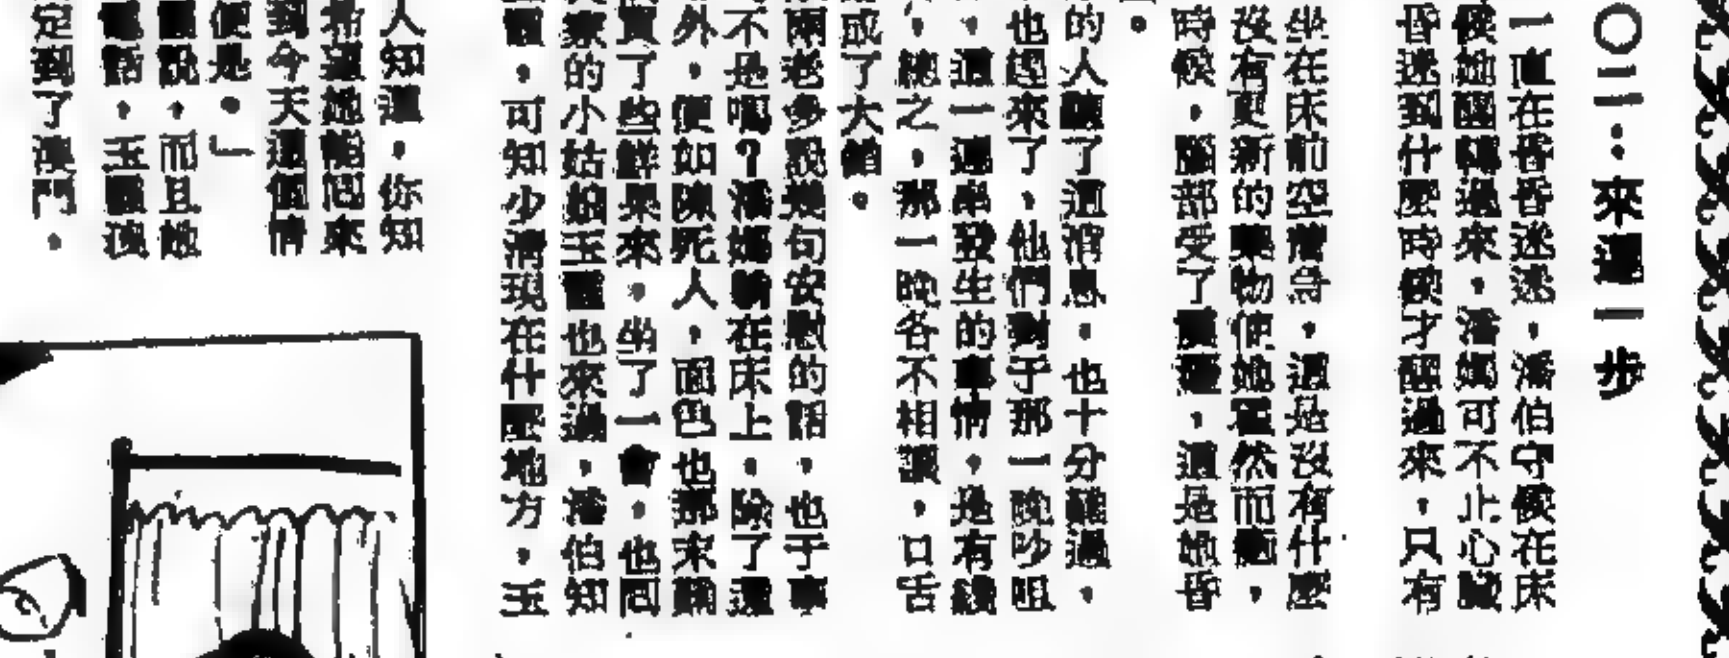 〇二：來遲一步
一直在昏昏迷迷，潘伯守候在床
候她醒轉過來，潘媽可不止心臟
昏迷到什麼時候才醒過來，只有
坐在床前空着急，還是沒有什麼
沒有更新的藥物使她霍然而癒，
時候，腦部受了震，這是她昏
的人聽了這消息，也十分難過，
也趕來了、他們對于那一晚吵咀
，這一連串發生的事情，是有
，總之，那一晚各不相讓，口舌
成了大錯。
兩老多說幾句安慰的話，也于事
不是嗎？潘媽躺在床上，除了還
外，便如陳死人，面色也那末
買了些鮮果來，坐了一會，也回
家的小姑娘玉也來過，潘伯知
，可知少清現在什麼地方，玉
人知道，你知
希望她能回來
到今天這個情
便是。」
說，而且她
電話，玉
定到了澳門。